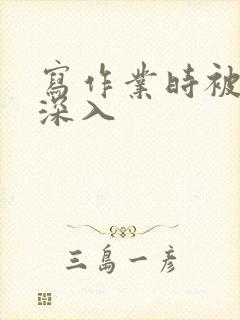 寫作業時被
深入
三島一彥